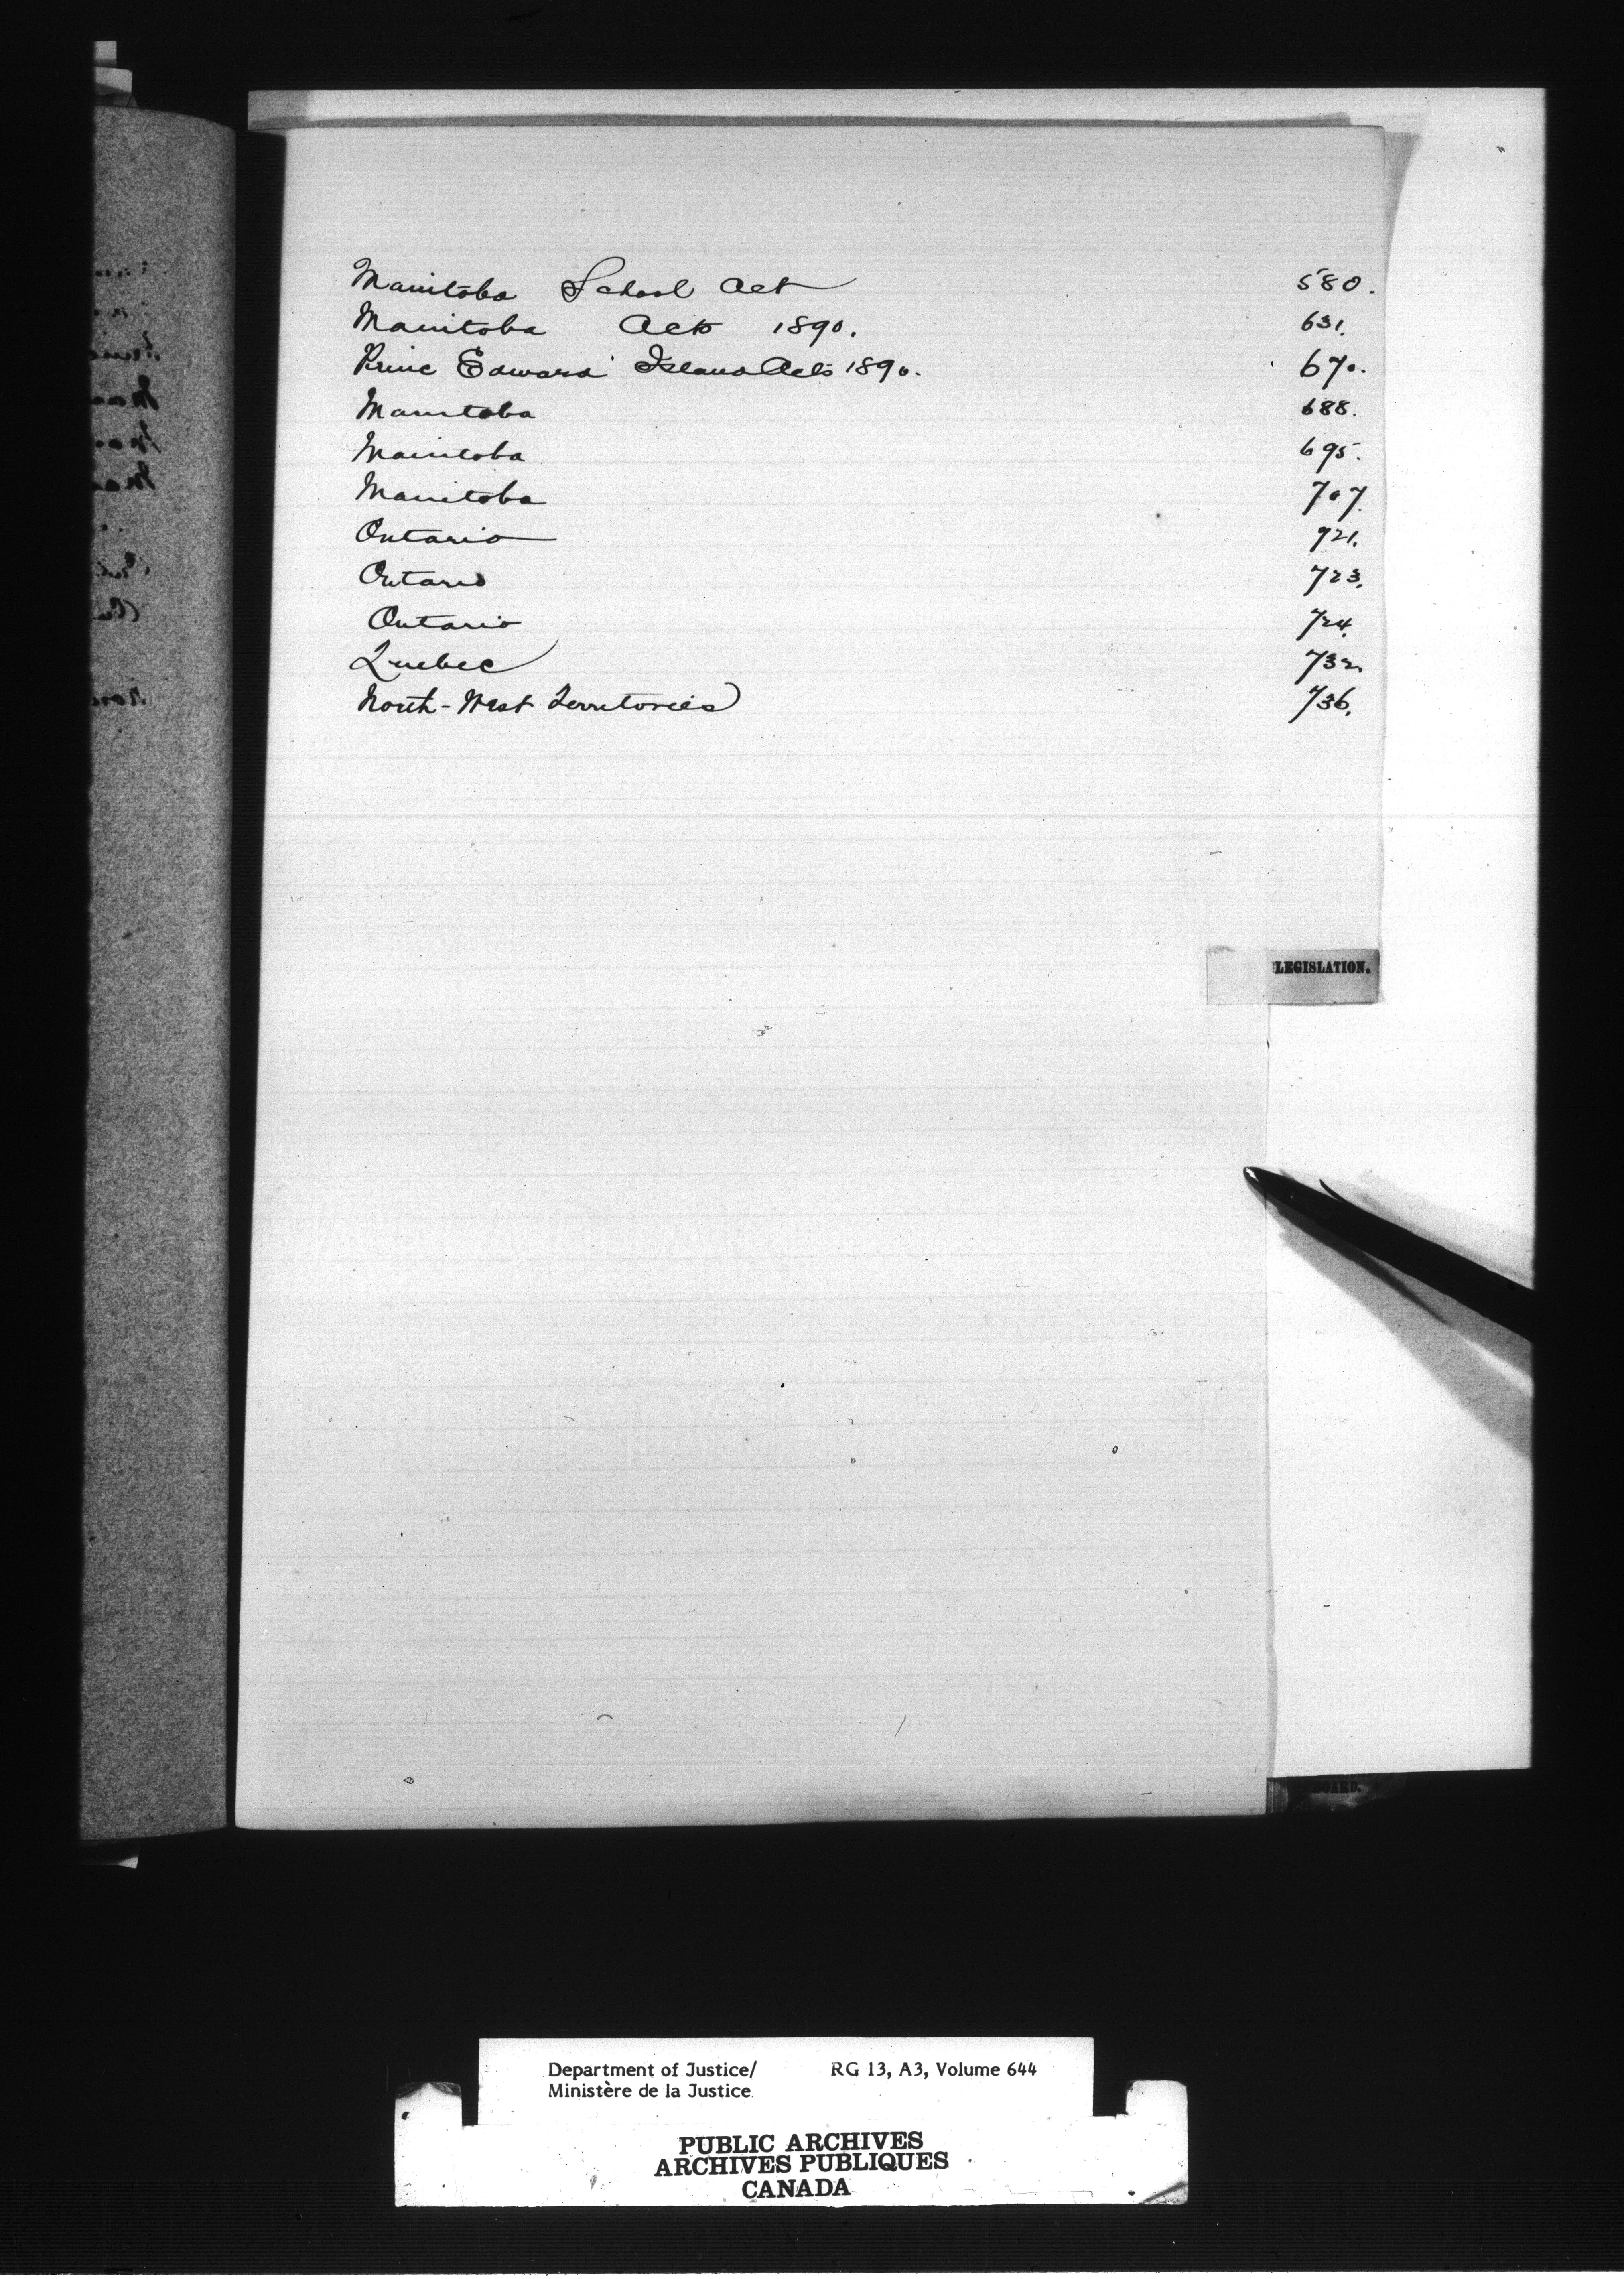 Manitoba School Act 580.
Manitoba Acts 1890. 631.
Prince Edward Island Acts 1890. 670.
Manitoba 688.
Manitoba 695.
Manitoba 707.
Ontario 721.
Ontario 723.
Ontario 724.
Quebec 732
North-West Territories 736.
LEGISLATION.
OARD.
Department of Justice/ RG 13, A3, Volume 644
Ministère de la Justice
PUBLIC ARCHIVES
ARCHIVES PUBLIQUES
CANADA